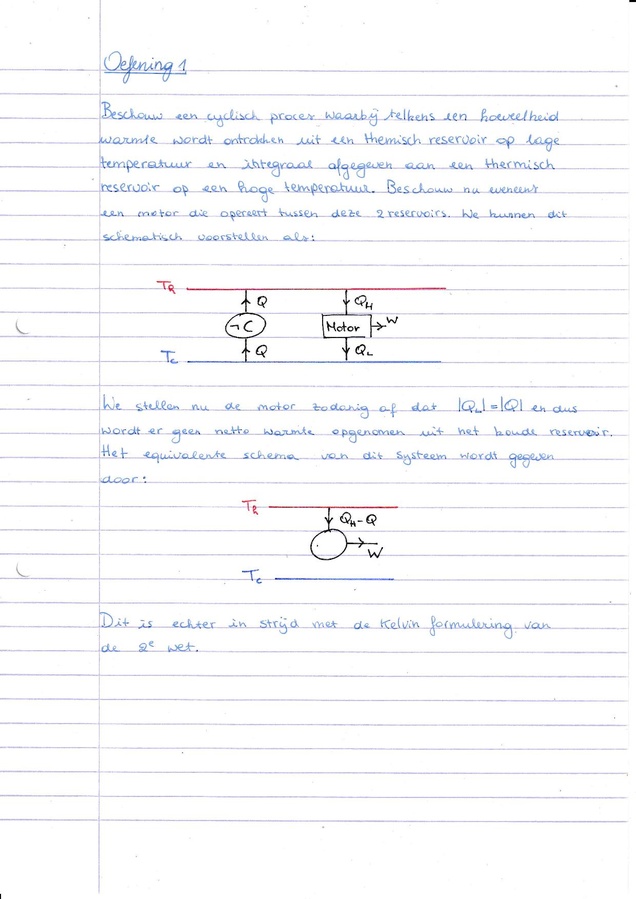 Oefening 1
Beschouw een cyclisch proces waarbij telkens een hoeveelheid
warmte wordt onttrokken uit een themisch reservoir op lage
temperatuur en integraal afgegeven aan een thermisch
reservoir op een hoge temperatuur. Beschouw nu eveneens
een motor die opereert tussen deze 2 reservoirs. We kunnen dit
schematisch voorstellen als:
TR
Q QH
¬C Motor W
Tc Q QL
We stellen nu de motor zodanig af dat |QL|=|Q| en dus
wordt er geen netto warmte opgenomen uit het koude reservoir.
Het equivalente schema van dit systeem wordt gegeven
door:
TR
QH-Q
W
Tc
Dit is echter in strijd met de Kelvin formulering van
de 2e wet.